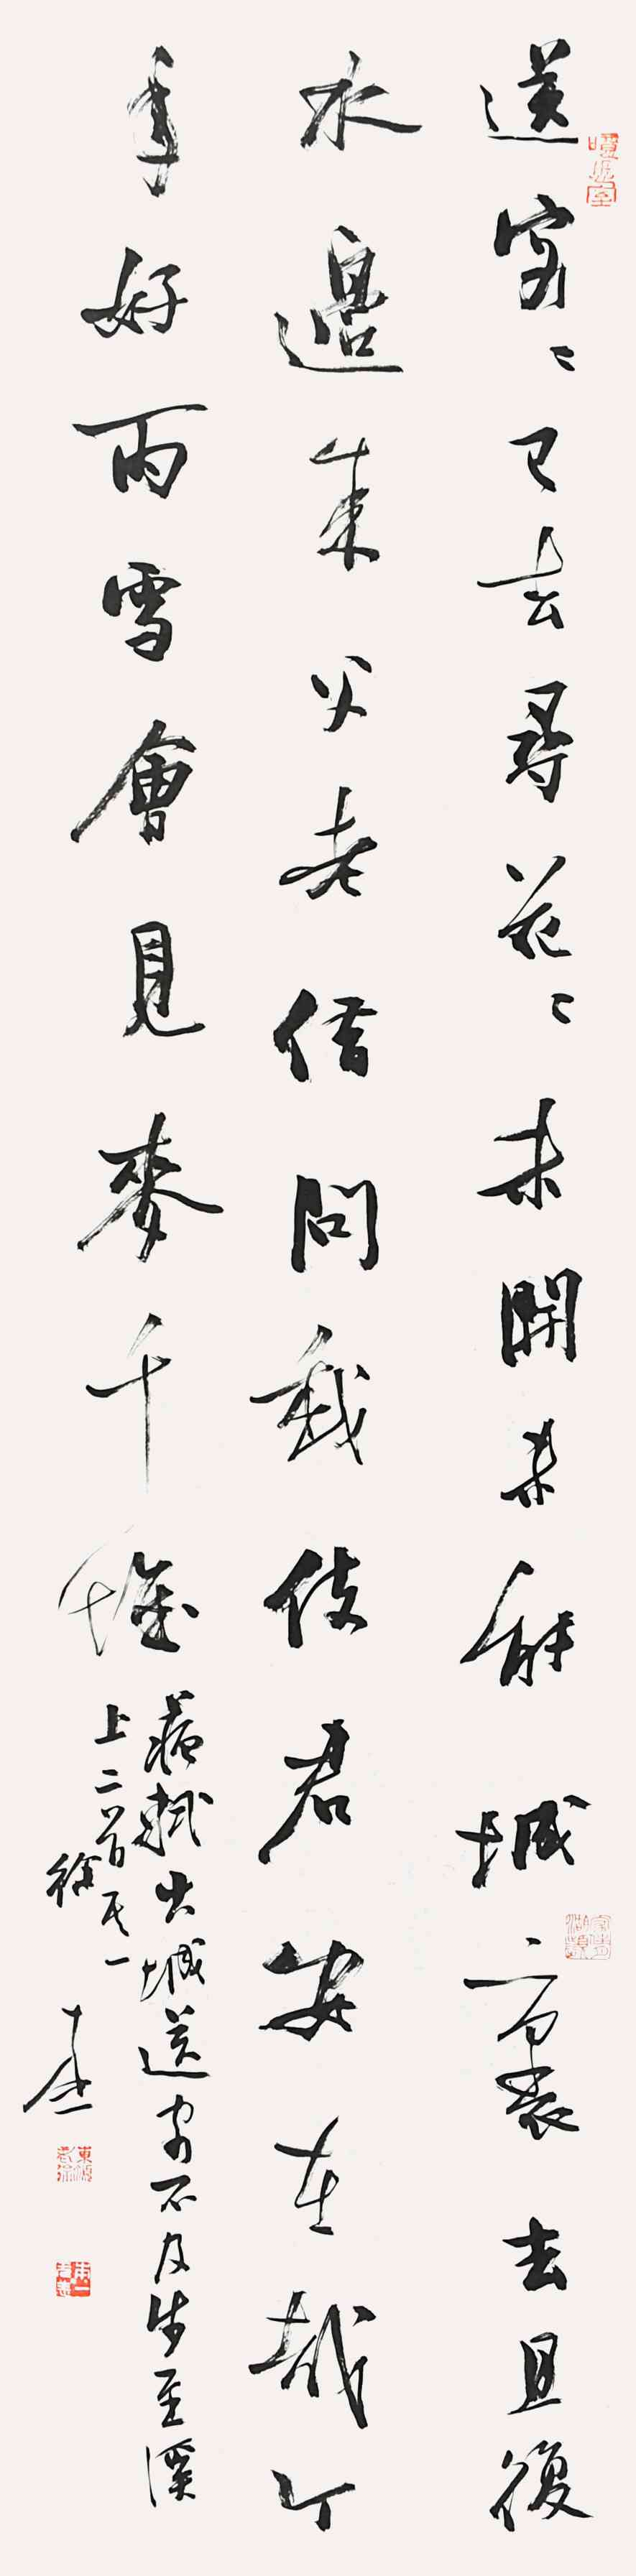 送客〻已去尋花〻未開未能城裏去且復
水邊來父老借問我使君安在哉今
年好雨雪會見麥千堆
蘇軾出城送客不及步至溪
上二首其一
徐